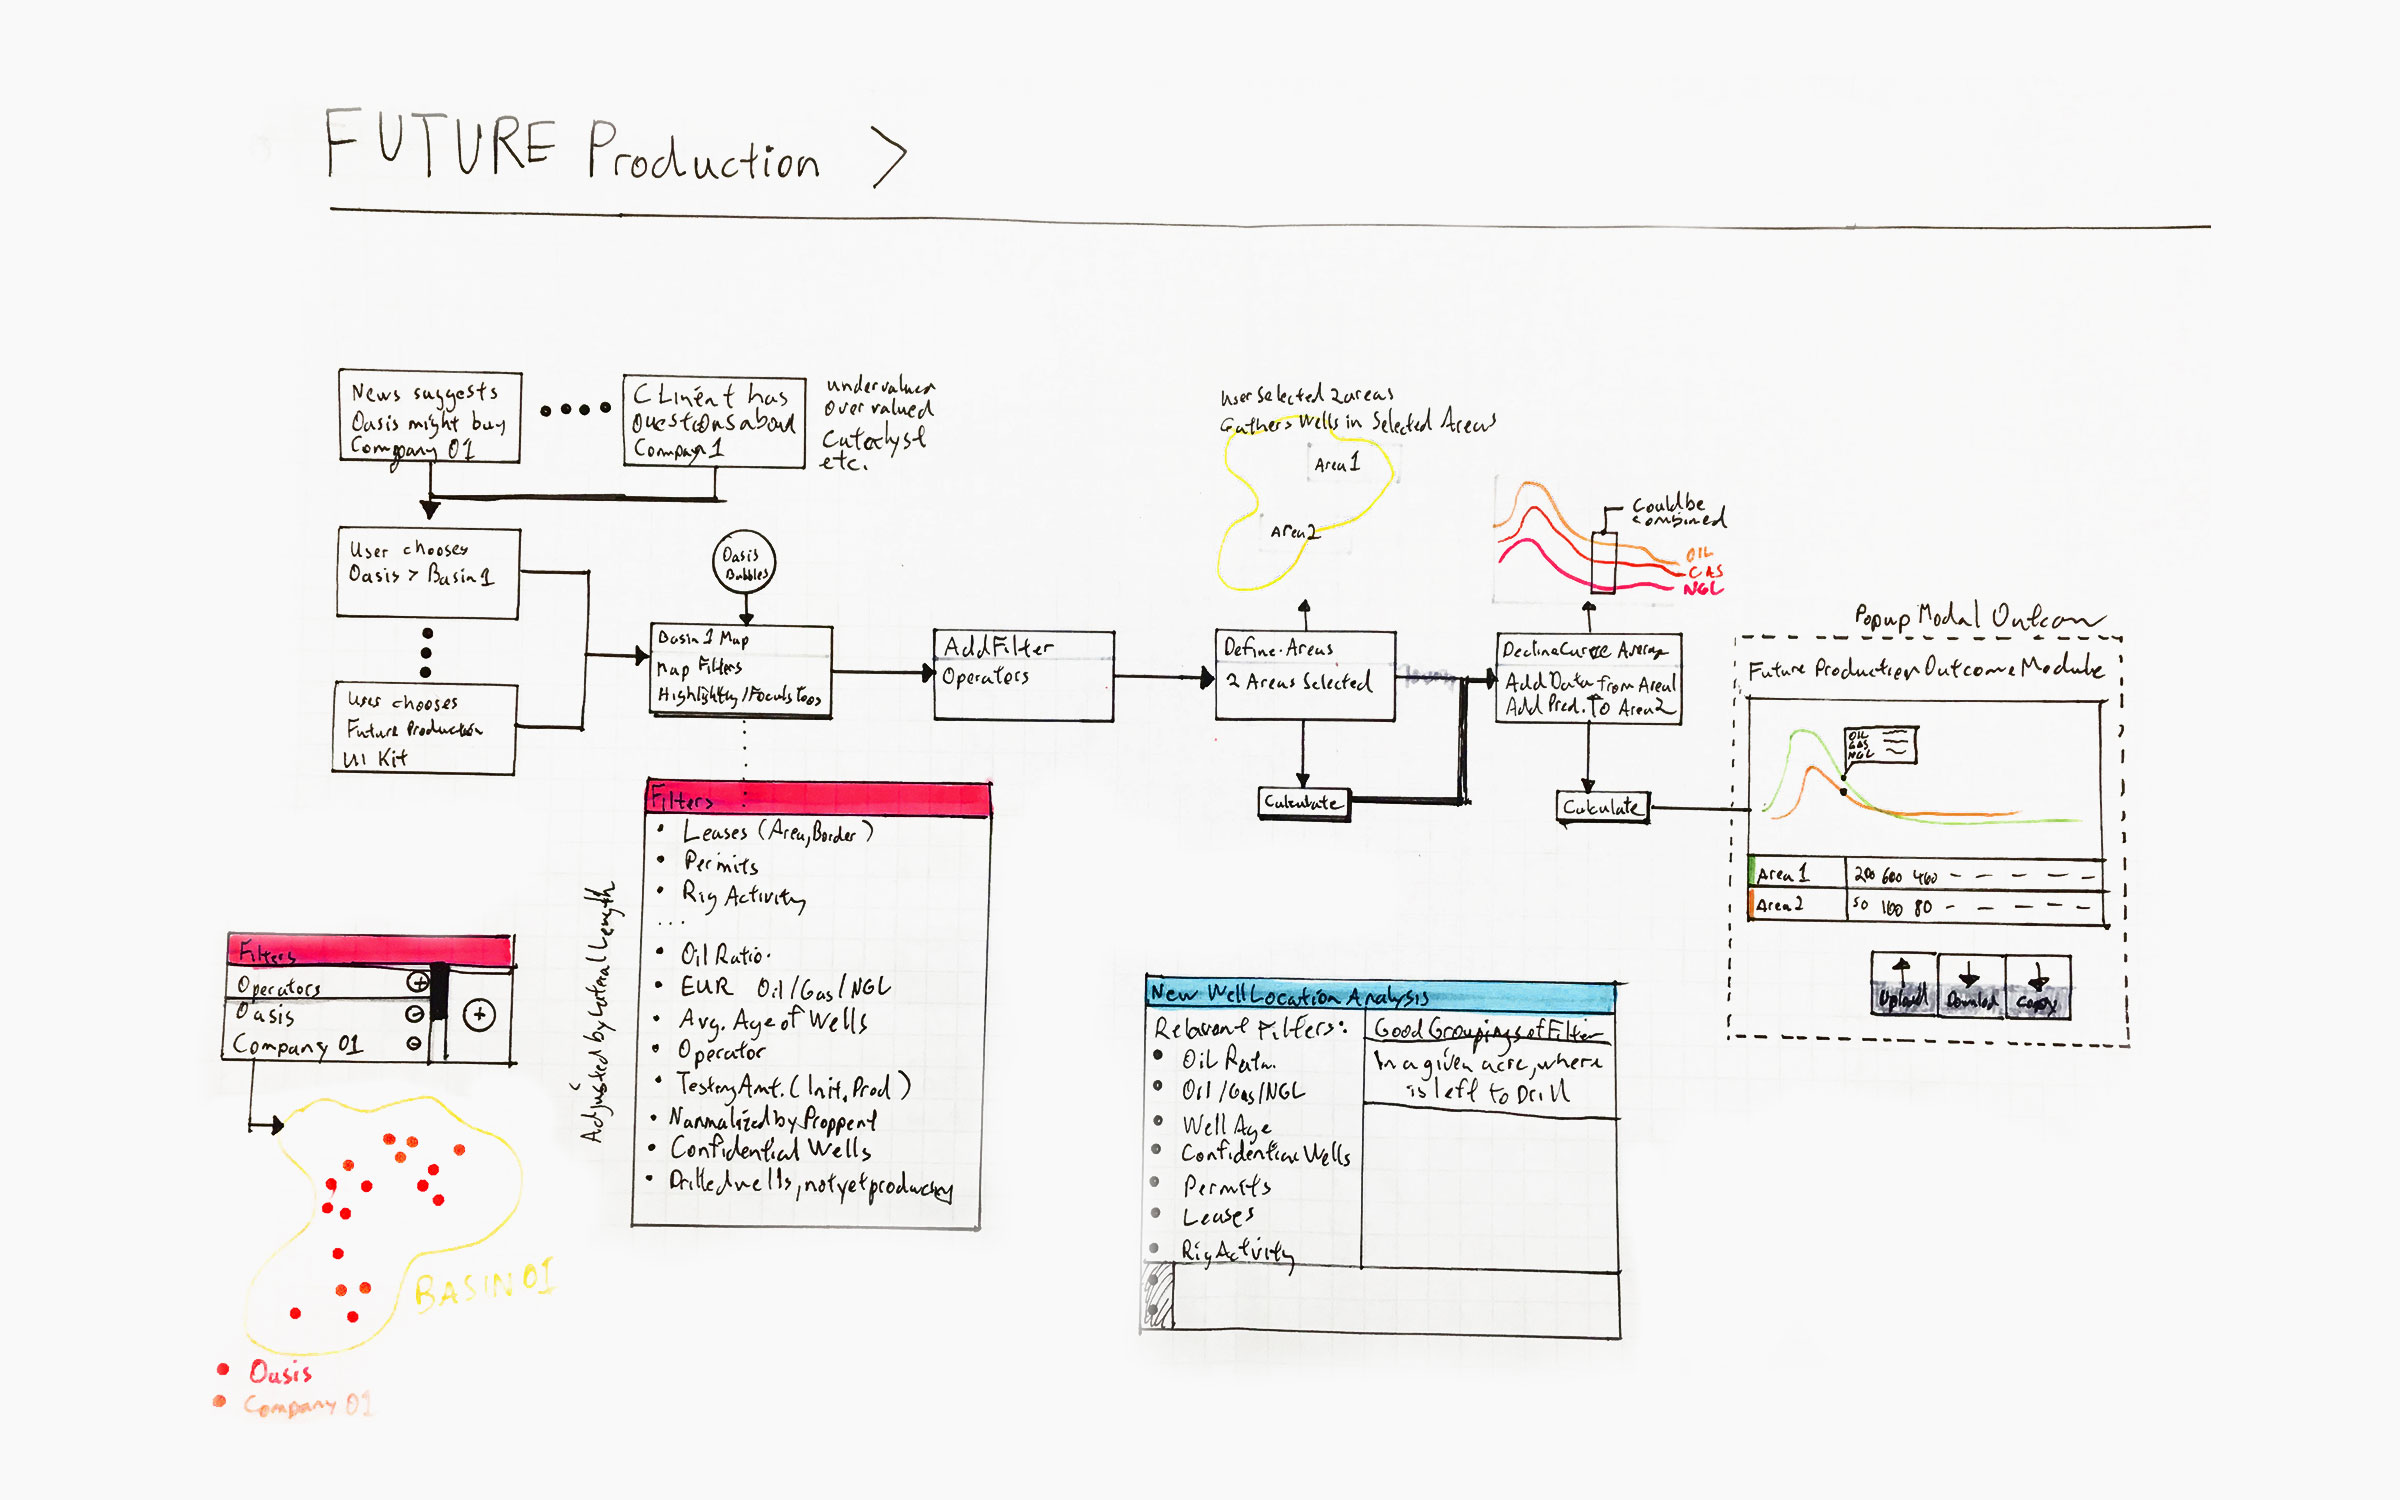 FUTURE Production >
News suggests
Oasis might buy
Company 01
CLinent has
Questions about
Company 1
undervalued
overvalued
Catalyst
etc.
User chooses
Oasis > Basin 1
User chooses
Future Production
UI Kit
Oasis
Bubbles
Basin 1 Map
Map Filters
Highlighting/Focus tools
Add Filter
Operators
User Selected 2 areas
Gathers Wells in Selected Areas
Area 1
Area 2
Define Areas
2 Areas Selected
Calculate
Could be
combined
OIL
GAS
NGL
Decline Curve Average
Add Data from Area 1
Add Pred. To Area 2
Calculate
Popup Modal Outcom
Future Production Outcome Module
OIL
GAS
NGL
Area 1 200 600 460
Area 2 50 160 80
Upload Download Copy
Filters
• Leases (Area, Border)
• Permits
• Rig Activity
...
• Oil Ratio.
• EUR Oil/Gas/NGL
• Avg. Age of Wells
• Operator
• Testing Amt. (Init. Prod)
• Nanmalized by Proppent
• Confidential Wells
• Drilled wells, not yet producing
Adjusted by Lateral Length
Filters
Operators +
Oasis -
Company 01 -
+
BASIN 01
• Oasis
• Company 01
New Well Location Analysis
Relavant Filters:
• Oil Ratio.
• Oil/Gas/NGL
• Well Age
• Confidential Wells
• Permits
• Leases
• Rig Activity
Good Groupings of Filter
In a given acre, where
is left to Drill